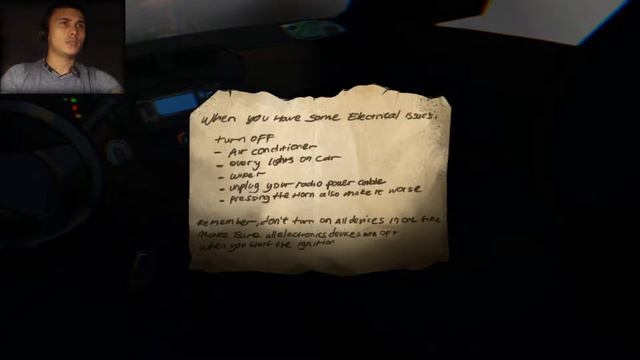 When you Have some Electrical issues.
turn OFF
- Air conditioner
- every lights on car
- wiper
- unplug your radio power cable
- pressing the Horn also make it worse
Remember, don't turn on All devices in one time
Make sure all electronics devices are OFF
when you start the ignition